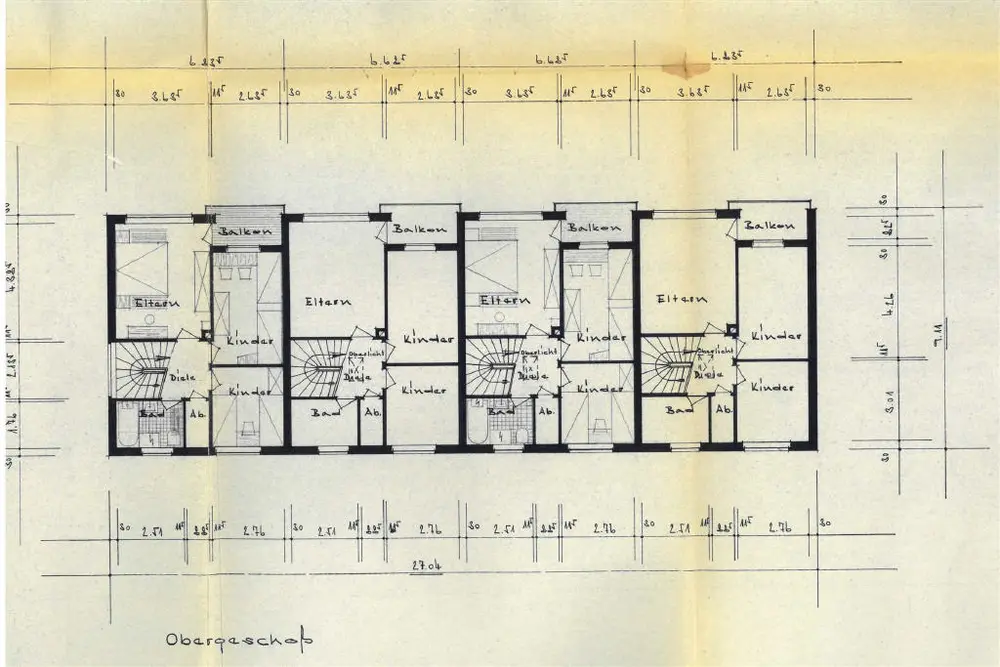 6.235 6.625 6.625 6.235
30 3.635 11⁵ 2.635 30 3.635 11⁵ 2.635 30 3.635 11⁵ 2.635 30 3.635 11⁵ 2.635 30
Balkon Balkon Balkon Balkon
Eltern Eltern Eltern Eltern
Kinder Kinder Kinder Kinder
Oberlicht Oberlicht Oberlicht
Diele Diele Diele Diele
Kinder Kinder Kinder Kinder
Bad Ab. Bad Ab. Bad Ab. Bad Ab.
30
30
4.26
11⁵
3.01
30
9.11
30 2.51 11⁵ 11⁵ 2.76 30 2.51 11⁵ 11⁵ 2.76 30 2.51 11⁵ 11⁵ 2.76 30 2.51 11⁵ 11⁵ 2.76 30
27.04
Obergeschoß